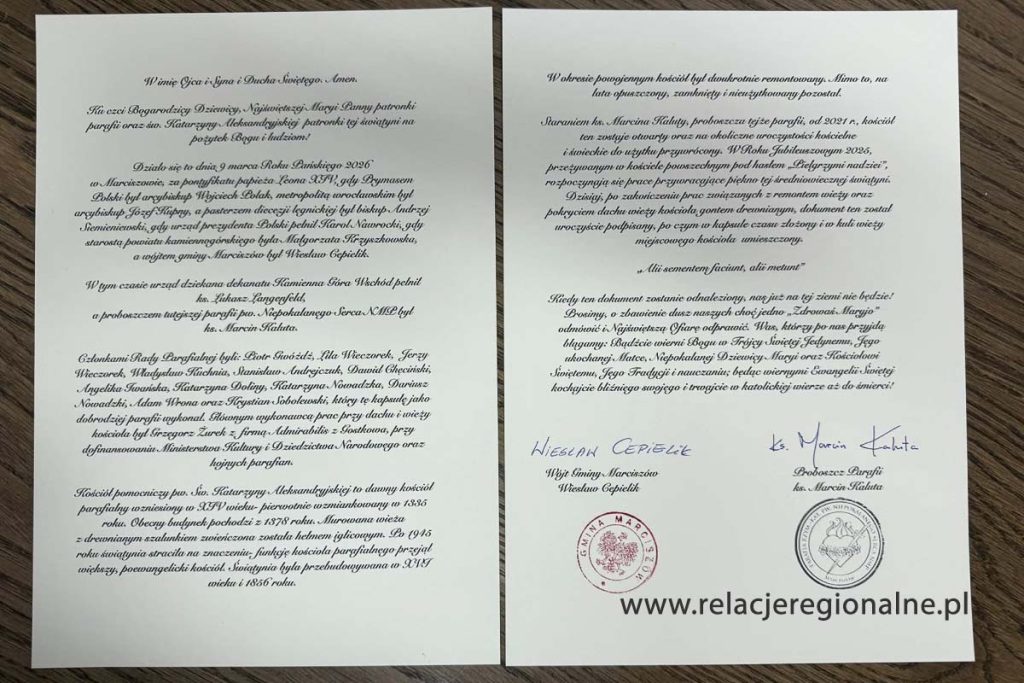 W imię Ojca i Syna i Ducha Świętego. Amen.
Ku czci Bogarodzicy Dziewicy, Najświętszej Maryi Panny patronki
parafii oraz św. Katarzyny Aleksandryjskiej patronki tej świątyni na
pożytek Bogu i ludziom!
Działo się to dnia 9 marca Roku Pańskiego 2026
w Marciszowie, za pontyfikatu papieża Leona XIV, gdy Prymasem
Polski był arcybiskup Wojciech Polak, metropolitą wrocławskim był
arcybiskup Józef Kupny, a pasterzem diecezji legnickiej był biskup Andrzej
Siemieniewski, gdy urząd prezydenta Polski pełnił Karol Nawrocki, gdy
starostą powiatu kamiennogórskiego była Małgorzata Krzyszkowska,
a wójtem gminy Marciszów był Wiesław Cepielik.
W tym czasie urząd dziekana dekanatu Kamienna Góra Wschód pełnił
ks. Łukasz Langenfeld,
a proboszczem tutejszej parafii pw. Niepokalanego Serca NMP był
ks. Marcin Kałuta.
Członkami Rady Parafialnej byli: Piotr Gwóźdź, Lila Wieczorek, Jerzy
Wieczorek, Władysław Kuchnia, Stanisław Andrejczuk, Dawid Chęciński,
Angelika Iwańska, Katarzyna Doliny, Katarzyna Nowadzka, Dariusz
Nowadzki, Adam Wrona oraz Krystian Sobolewski, który tę kapsułę jako
dobrodziej parafii wykonał. Głównym wykonawcą prac przy dachu i wieży
kościoła był Grzegorz Żurek z firmą Admirabilis z Gostkowa, przy
dofinansowaniu Ministerstwa Kultury i Dziedzictwa Narodowego oraz
hojnych parafian.
Kościół pomocniczy pw. Św. Katarzyny Aleksandryjskiej to dawny kościół
parafialny wzniesiony w XIV wieku- pierwotnie wzmiankowany w 1335
roku. Obecny budynek pochodzi z 1378 roku. Murowana wieża
z drewnianym szalunkiem zwieńczona została hełmem iglicowym. Po 1945
roku świątynia straciła na znaczeniu- funkcję kościoła parafialnego przejął
większy, poewangelicki kościół. Świątynia była przebudowywana w XVI
wieku i 1856 roku.
W okresie powojennym kościół był dwukrotnie remontowany. Mimo to, na
lata opuszczony, zamknięty i nieużytkowany pozostał.
Staraniem ks. Marcina Kałuty, proboszcza tejże parafii, od 2021 r., kościół
ten zostaje otwarty oraz na okoliczne uroczystości kościelne
i świeckie do użytku przywrócony. W Roku Jubileuszowym 2025,
przeżywanym w kościele powszechnym pod hasłem „Pielgrzymi nadziei”,
rozpoczynają się prace przywracające piękno tej średniowiecznej świątyni.
Dzisiaj, po zakończeniu prac związanych z remontem wieży oraz
pokryciem dachu wieży kościoła gontem drewnianym, dokument ten został
uroczyście podpisany, po czym w kapsule czasu złożony i w kuli wieży
miejscowego kościoła umieszczony.
„Alii sementem faciunt, alii metunt”
Kiedy ten dokument zostanie odnaleziony, nas już na tej ziemi nie będzie!
Prosimy, o zbawienie dusz naszych choć jedno „Zdrowaś Maryjo”
odmówić i Najświętszą Ofiarę odprawić. Was, którzy po nas przyjdą
błagamy: Bądźcie wierni Bogu w Trójcy Świętej Jedynemu, Jego
ukochanej Matce, Niepokalanej Dziewicy Maryi oraz Kościołowi
Świętemu, Jego Tradycji i nauczaniu; będąc wiernymi Ewangelii Świętej
kochajcie bliźniego swojego i trwajcie w katolickiej wierze aż do śmierci!
WIESŁAW CEPIELIK
Wójt Gminy Marciszów
Wiesław Cepielik
ks. Marcin Kałuta
Proboszcz Parafii
ks. Marcin Kałuta
GMINA MARCISZÓW
www.relacjeregionalne.pl